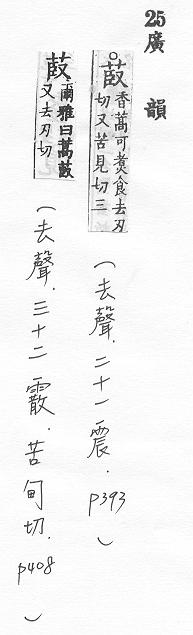 25 廣韻
○菣 香蒿可煮食去刃
切又苦見切三
(去聲.二十一震.p393)
菣 爾雅曰蒿菣
又去刃切
(去聲.三十二霰.苦甸切.p408)